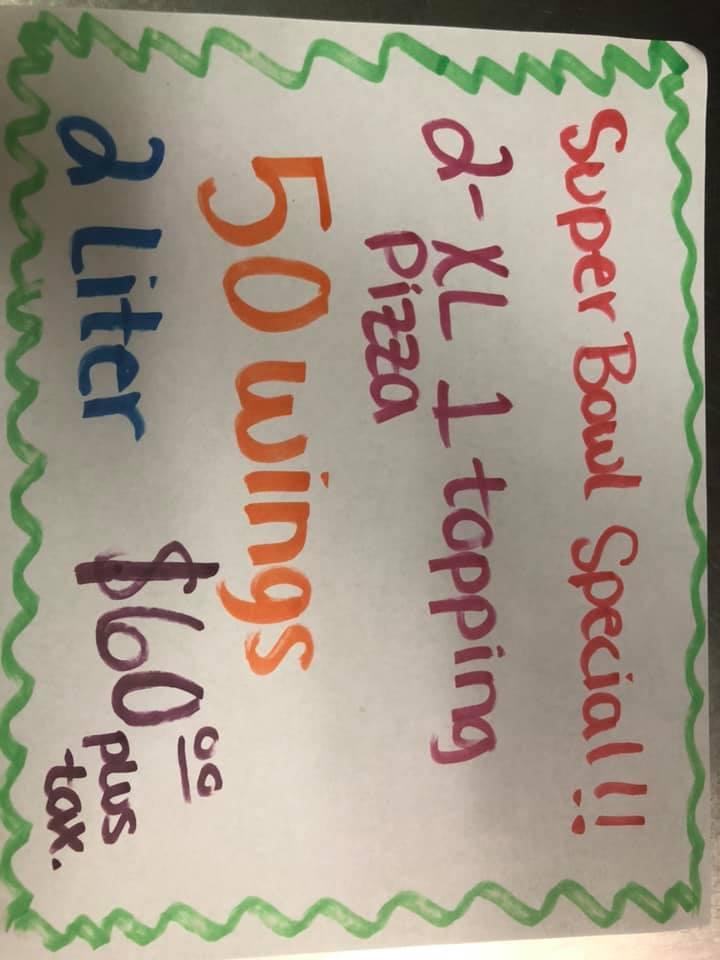 Super Bowl Special!!
2-XL 1 topping
Pizza
50 wings
2 Liter
$60.00
plus
tax.